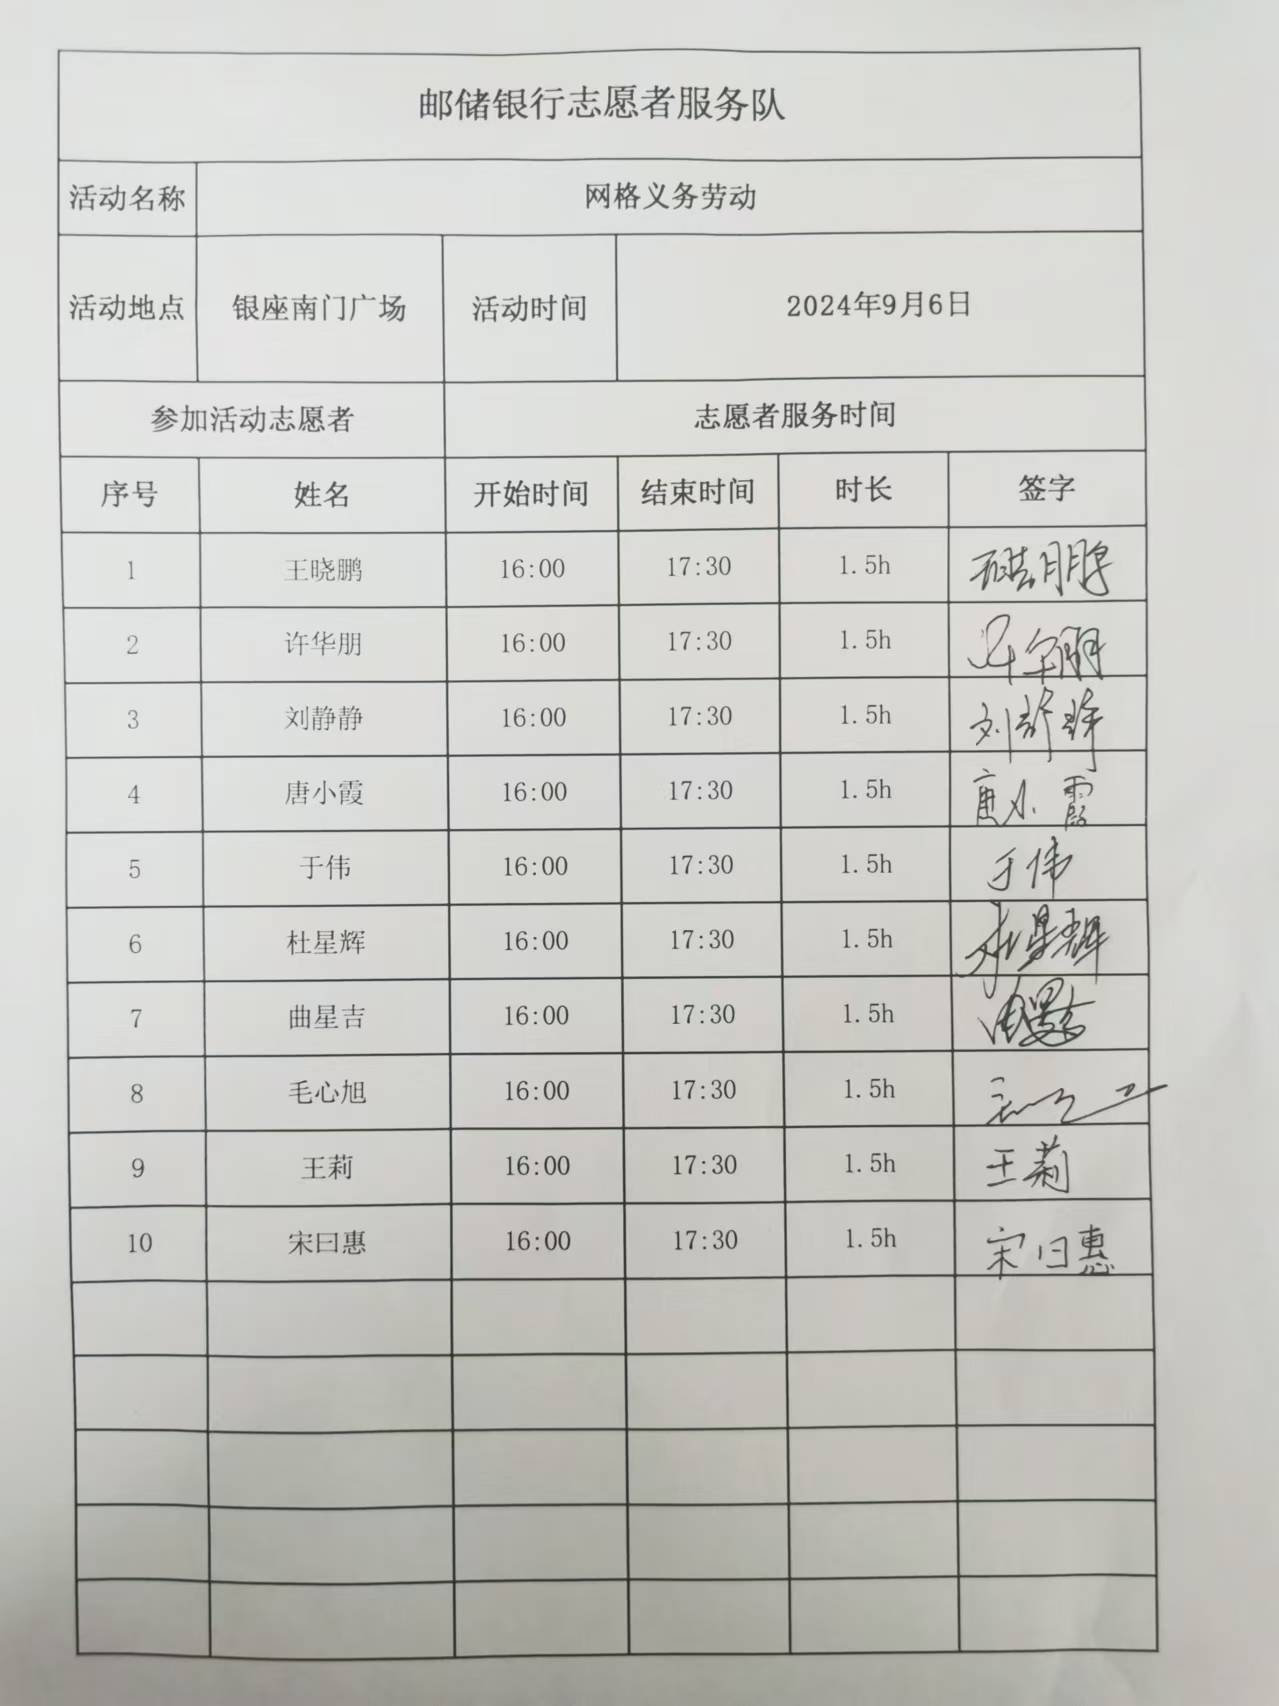 邮储银行志愿者服务队
活动名称 网格义务劳动
活动地点 银座南门广场 活动时间 2024年9月6日
参加活动志愿者 志愿者服务时间
序号 姓名 开始时间 结束时间 时长 签字
1 王晓鹏 16:00 17:30 1.5h 王晓鹏
2 许华朋 16:00 17:30 1.5h 许华朋
3 刘静静 16:00 17:30 1.5h 刘静静
4 唐小霞 16:00 17:30 1.5h 唐小霞
5 于伟 16:00 17:30 1.5h 于伟
6 杜星辉 16:00 17:30 1.5h 杜星辉
7 曲星吉 16:00 17:30 1.5h 曲星吉
8 毛心旭 16:00 17:30 1.5h
9 王莉 16:00 17:30 1.5h 王莉
10 宋曰惠 16:00 17:30 1.5h 宋曰惠